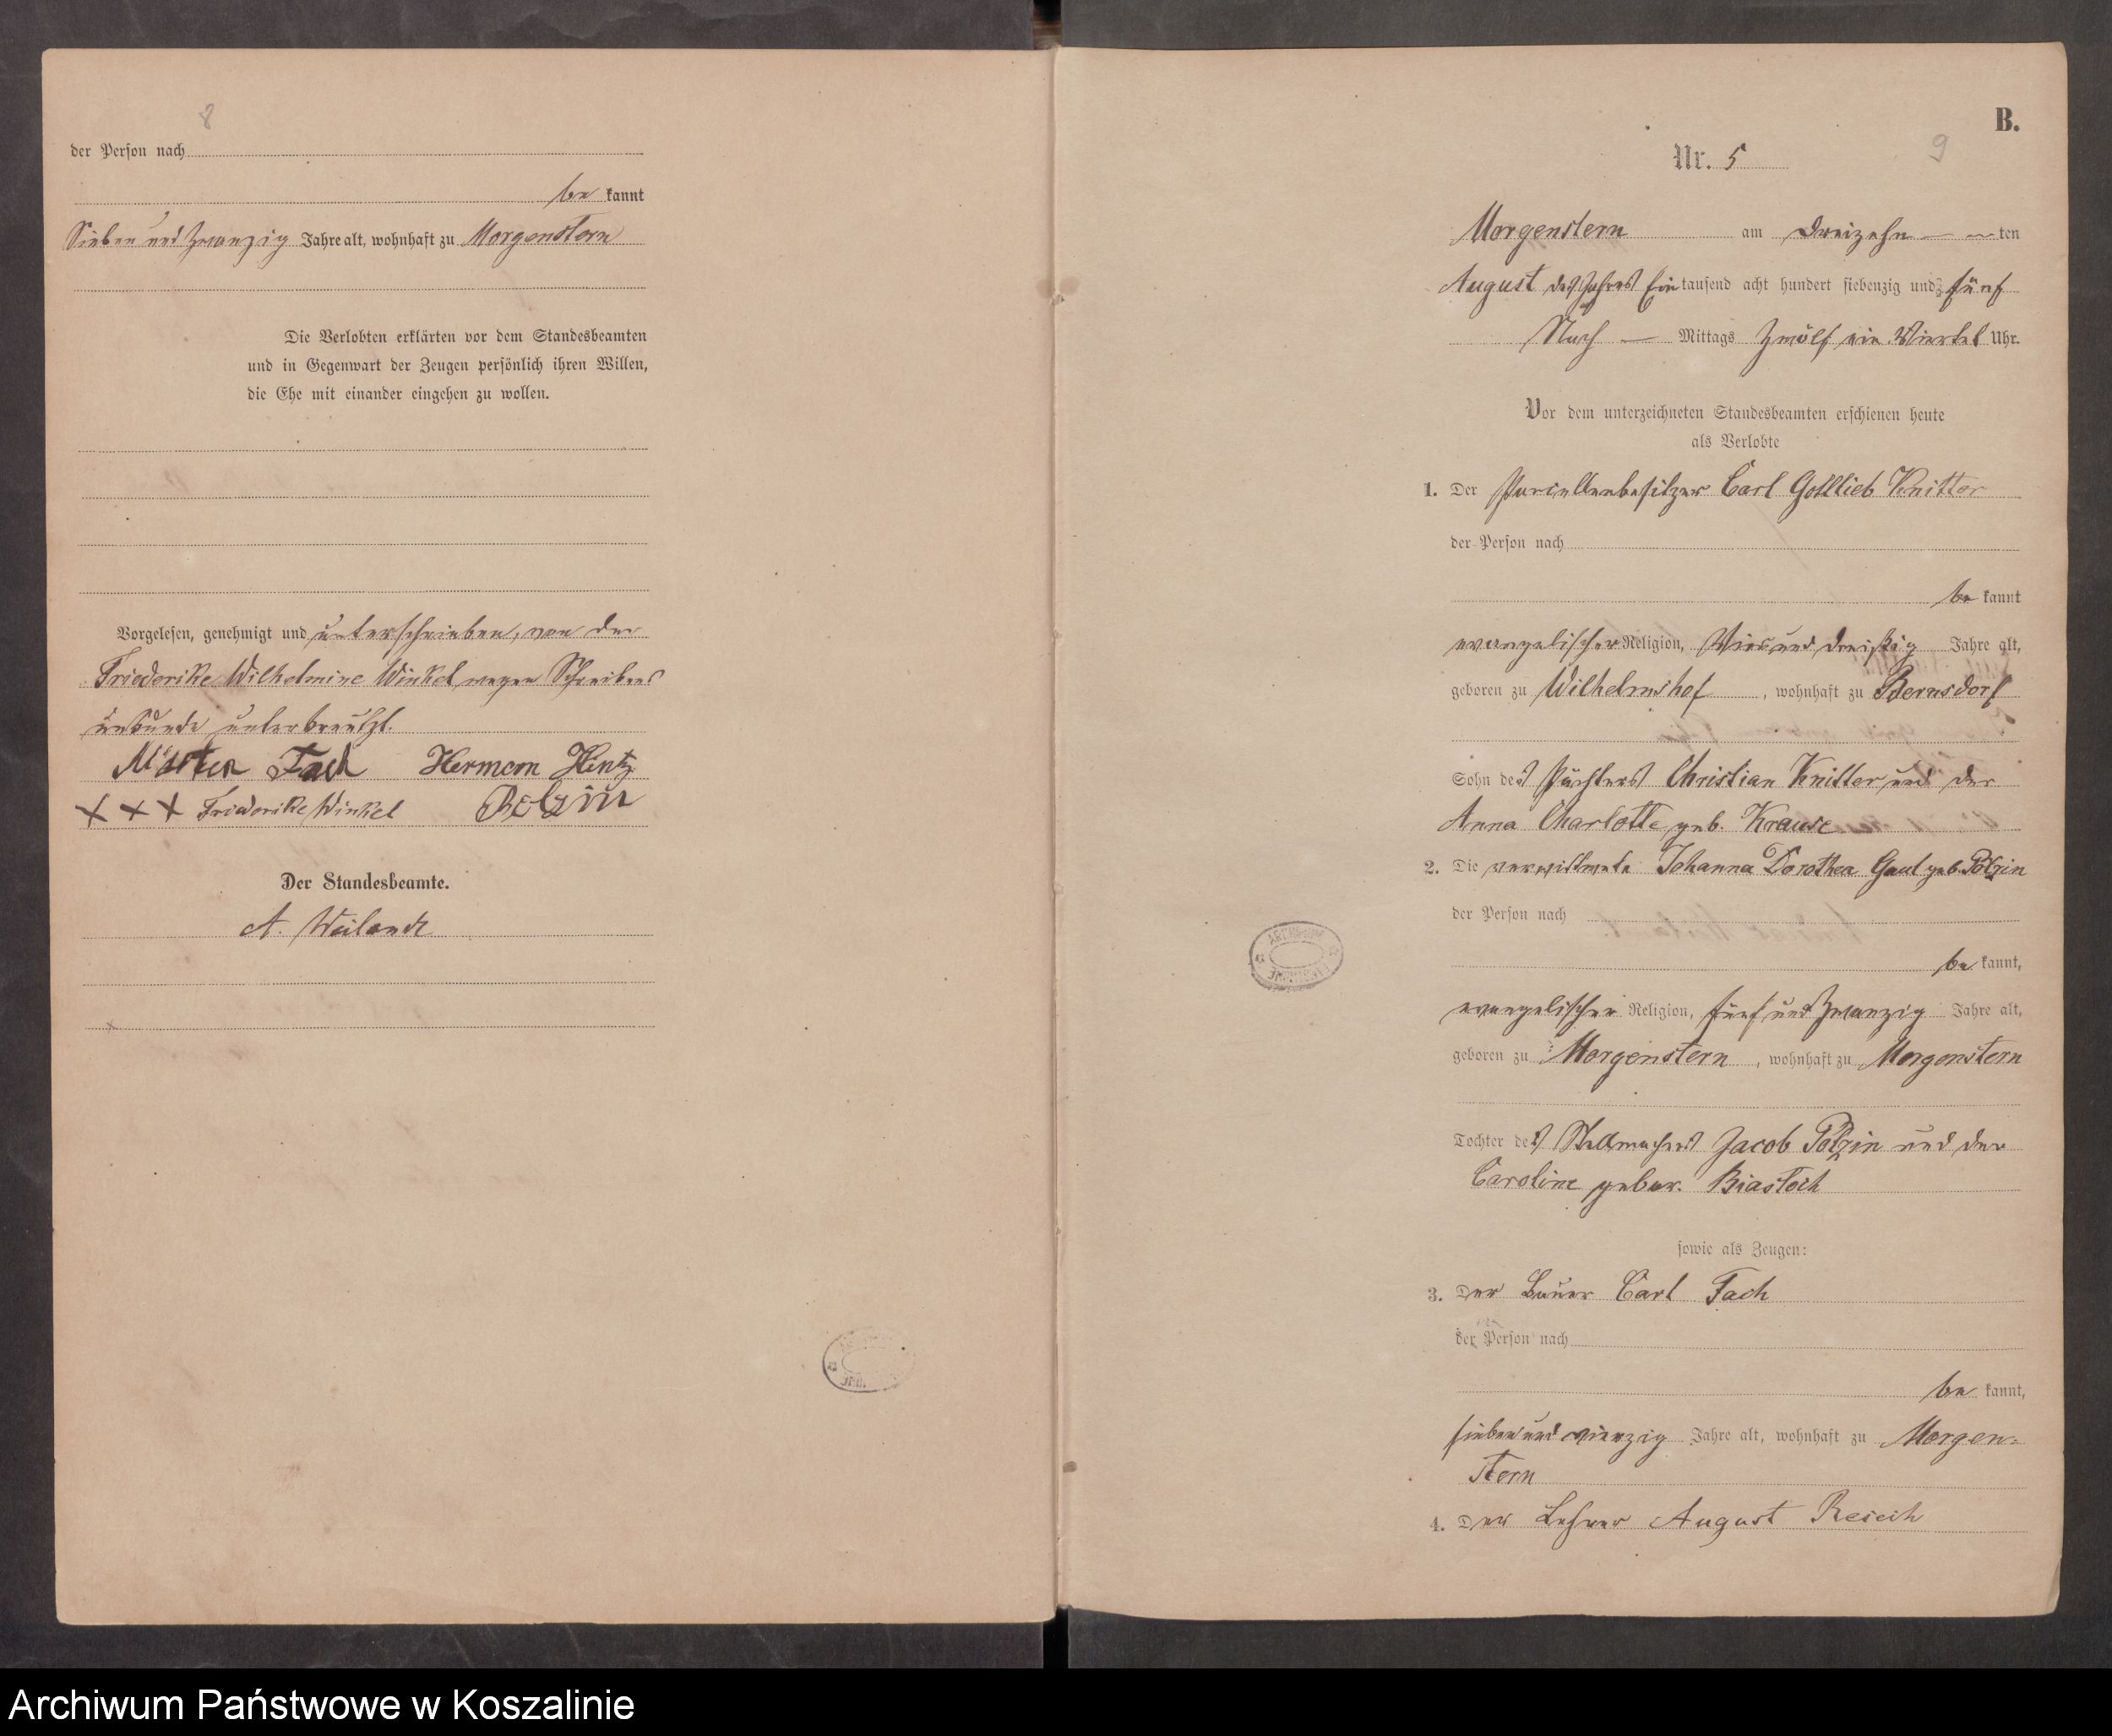 8
der Person nach
be kannt
Sieben und zwanzig Jahre alt, wohnhaft zu Morgenstern
Die Verlobten erklärten vor dem Standesbeamten
und in Gegenwart der Zeugen persönlich ihren Willen,
die Ehe mit einander eingehen zu wollen.
Vorgelesen, genehmigt und unterschrieben, von der
Friederike Wilhelmine Winkel wegen Schreibens
unkunde unterkreuzt.
Fach Hermann Hintz
+ + + Friederike Winkel
Der Standesbeamte.
A. Weilandt
B.
9
Nr. 5
Morgenstern am dreizehn ten
August des Jahres Ein tausend acht hundert siebenzig und fünf
Nach Mittags Zwölf ein Viertel Uhr.
Vor dem unterzeichneten Standesbeamten erschienen heute
als Verlobte
1. Der Parcellenbesitzer Carl Gottlieb Knitter
der Person nach
be kannt
evangelischer Religion, Vier und dreißig Jahre alt,
geboren zu Wilhelmshof, wohnhaft zu Bernsdorf
Sohn des Pächters Christian Knitter und der
Anna Charlotte geb. Krause
2. Die verwittwete Johanna Dorothea Gaul geb. Pölzin
der Person nach
be kannt,
evangelischer Religion, fünf und zwanzig Jahre alt,
geboren zu Morgenstern, wohnhaft zu Morgenstern
Tochter des Stellmachers Jacob Pölzin und der
Caroline gebor. Biastoch
sowie als Zeugen:
3. Der Bauer Carl Fach
der Person nach
be kannt,
sieben und vierzig Jahre alt, wohnhaft zu Morgen=
stern
4. Der Lehrer August
Archiwum Państwowe w Koszalinie